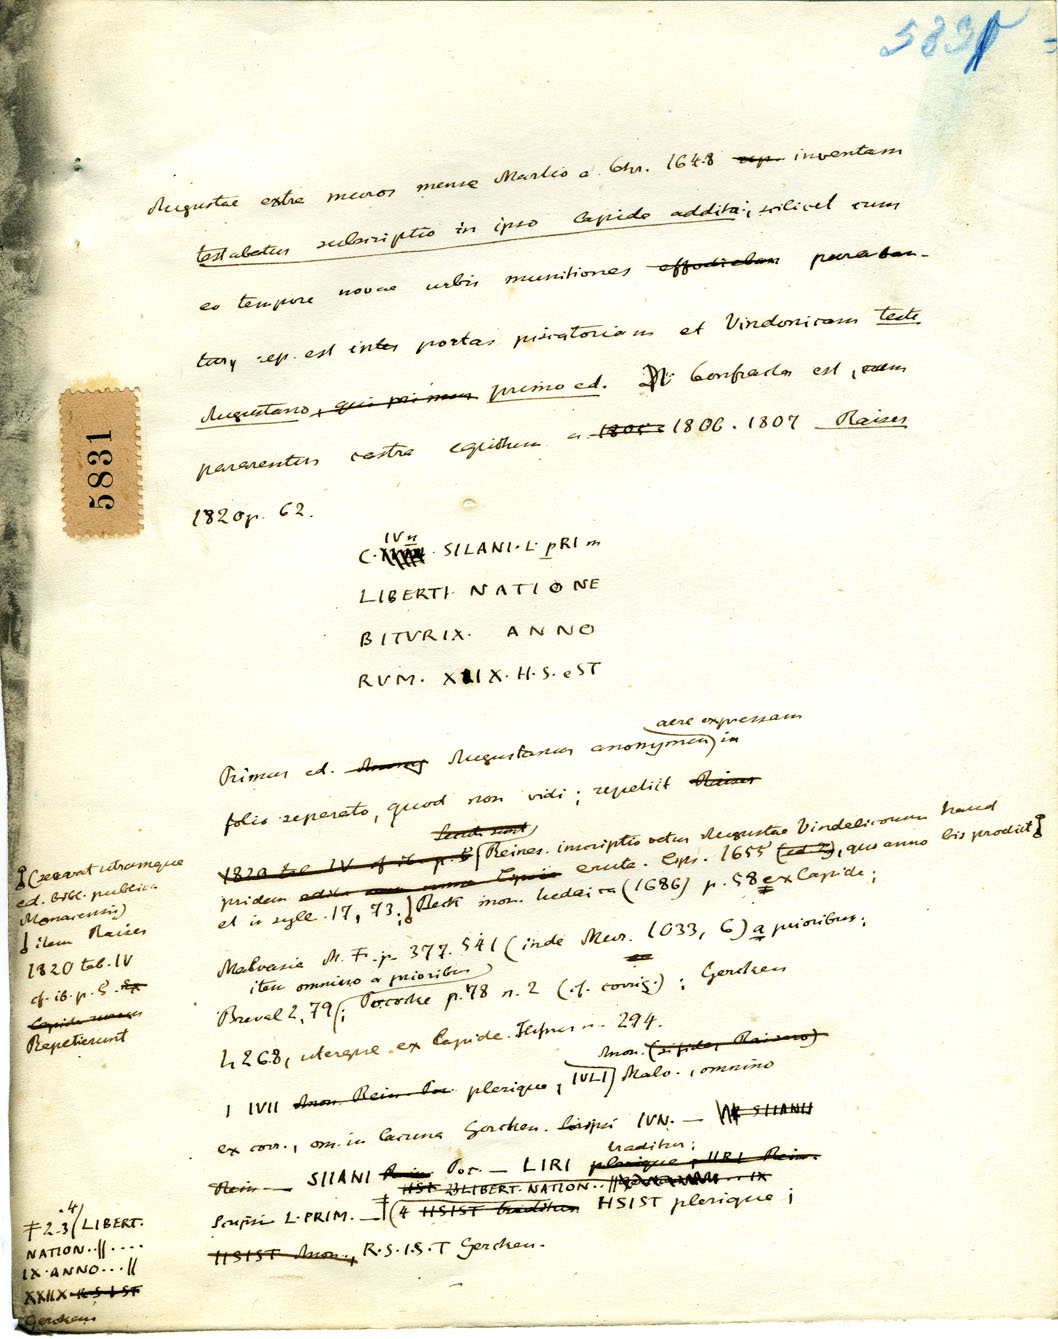 5831
Augustae extra muros mense Martio a. Chr. 1648 rep. inventam
testabatur subscriptio in ipso lapide addita; scilicet cum
eo tempore novae urbis munitiones effodiebam paraban-
tur, rep. est inter portas piscatoriam et Vindonicam teste
Augustano, qui primum primo ed. Confracta est, cum
pararentur castra equitum a. 1805 1806. 1807 Raiser
1820 p. 62.
5831
IVN
C. SILANI. L. PRIM
LIBERTI NATIONE
BITVRIX. ANNO
RVM. XIIX. H. S. EST
aere expressam
Primus ed. Augustanus anonymus in
folio separato, quod non vidi; repetiit Raiser
1820 tab. IV cf. ib. p. 5 Reines. inscriptio vetus Augustae Vindelicorum haud
pridem eruta. Lips. 1655 (ed 2), quo anno bis prodiit
et in syll. 17, 73; Beck mon. Iudaica (1686) p. 58 ex lapide;
Malvasia M. F. p. 377. 541 (inde Mur. 1033, 6) a prioribus;
item omnino a prioribus
Breval 2, 79; Pococke p. 78 n. 2 (cf. corrig.); Gercken
1, 268, uterque ex lapide. Hefner n. 294.
Mon.
1 IVII plerique, IVLI Malv., omnino
ex corr., om. in lacuna Gercken. Scripsi IVN. — SILANII
Rein — SIIANI Poc. — LIRI traditur;
HSIST 2 3 LIBERT. NATION.. || IX
Scripsi L. PRIM. — 4 HSIST traditur HSIST plerique;
HSIST Mon., R.S.I.S.T Gercken.
(servat utramque
ed. bibl. publica
Monacensis)
item Raiser
1820 tab. IV
cf. ib. p. 5.
Repetierunt
2-3 .4 LIBERT.
NATION..||....
IX. ANNO...||
XXIIX R.S.I.ST
Gercken